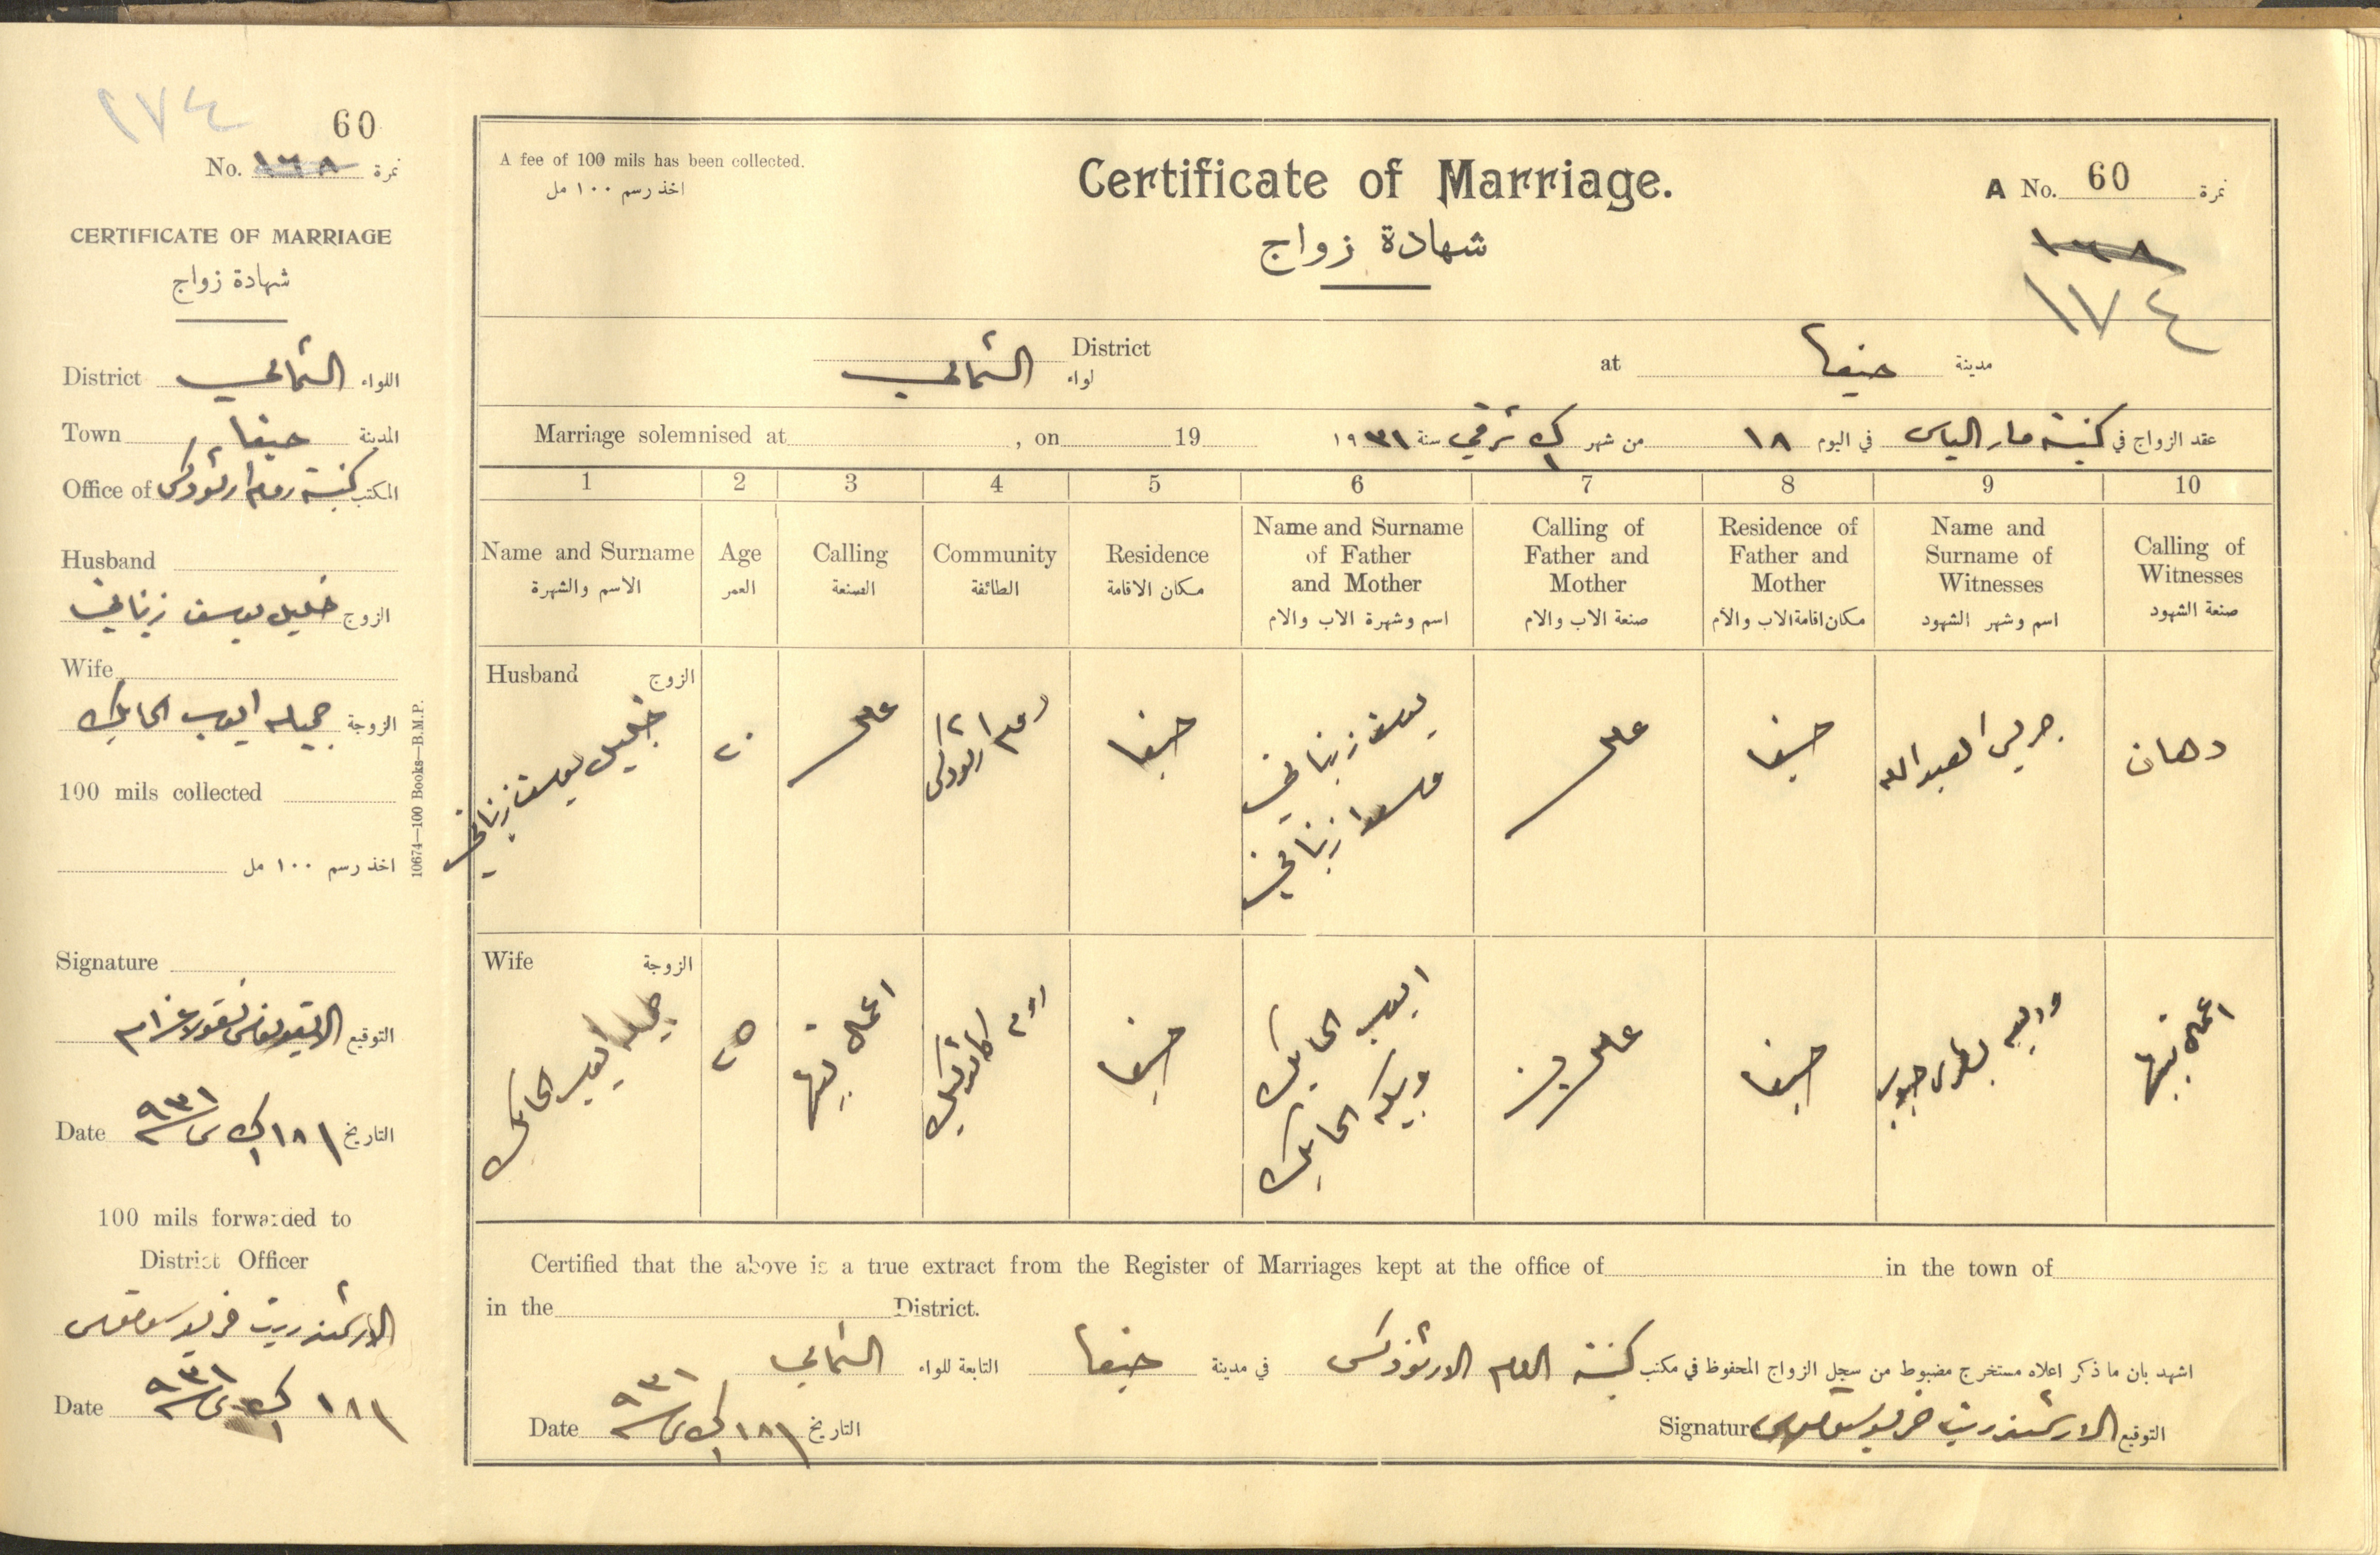 ١٧٤
60
No. ١٦٨ نمرة
CERTIFICATE OF MARRIAGE
شهادة زواج
District الشمالي اللواء
Town حيفا المدينة
Office of كنيسة روم ارثوذكس المكتب
Husband
خليل يوسف زيناتي الزوج
Wife
جميله ايوب الحايك الزوجة
100 mils collected
اخذ رسم ١٠٠ مل
Signature
التوقيع
Date ١٨ ك١ ش ٩٣١ التاريخ
100 mils forwarded to
District Officer
الارشمندريت
Date ١٨ ك١ ش ٩٣١
10674—100 Books—B.M.P.
A fee of 100 mils has been collected.
اخذ رسم ١٠٠ مل
Certificate of Marriage.
شهادة زواج
A No. 60 نمرة
١٦٨
١٧٤
District الشمالي لواء
at حيفا مدينة
Marriage solemnised at , on 19
عقد الزواج في كنيسة مار الياس في اليوم ١٨ من شهر ك١ شرقي سنة ١٩٣١
1 2 3 4 5 6 7 8 9 10
Name and Surname الاسم والشهرة
Age العمر
Calling الصنعة
Community الطائفة
Residence مكان الاقامة
Name and Surname of Father and Mother اسم وشهرة الاب والام
Calling of Father and Mother صنعة الاب والام
Residence of Father and Mother مكان اقامة الاب والأم
Name and Surname of Witnesses اسم وشهر الشهود
Calling of Witnesses صنعة الشهود
Husband الزوج
خليل يوسف زيناتي
٢٠
روم ارثوذكس
حيفا
يوسف زيناتي
زيناتي
حيفا
جريس العبدالله
دهان
Wife الزوجة
جميله ايوب الحايك
٢٥
اعمال بيتها
روم كاثوليك
حيفا
ايوب الحايك
الحايك
حيفا
اعمال بيتها
Certified that the above is a true extract from the Register of Marriages kept at the office of in the town of
in the District.
اشهد بان ما ذكر اعلاه مستخرج مضبوط من سجل الزواج المحفوظ في مكتب كنيسة الروم الارثوذكس في مدينة حيفا التابعة للواء الشمالي
Date ١٨ ك١ ش ٩٣١ التاريخ
Signature الارشمندريت التوقيع